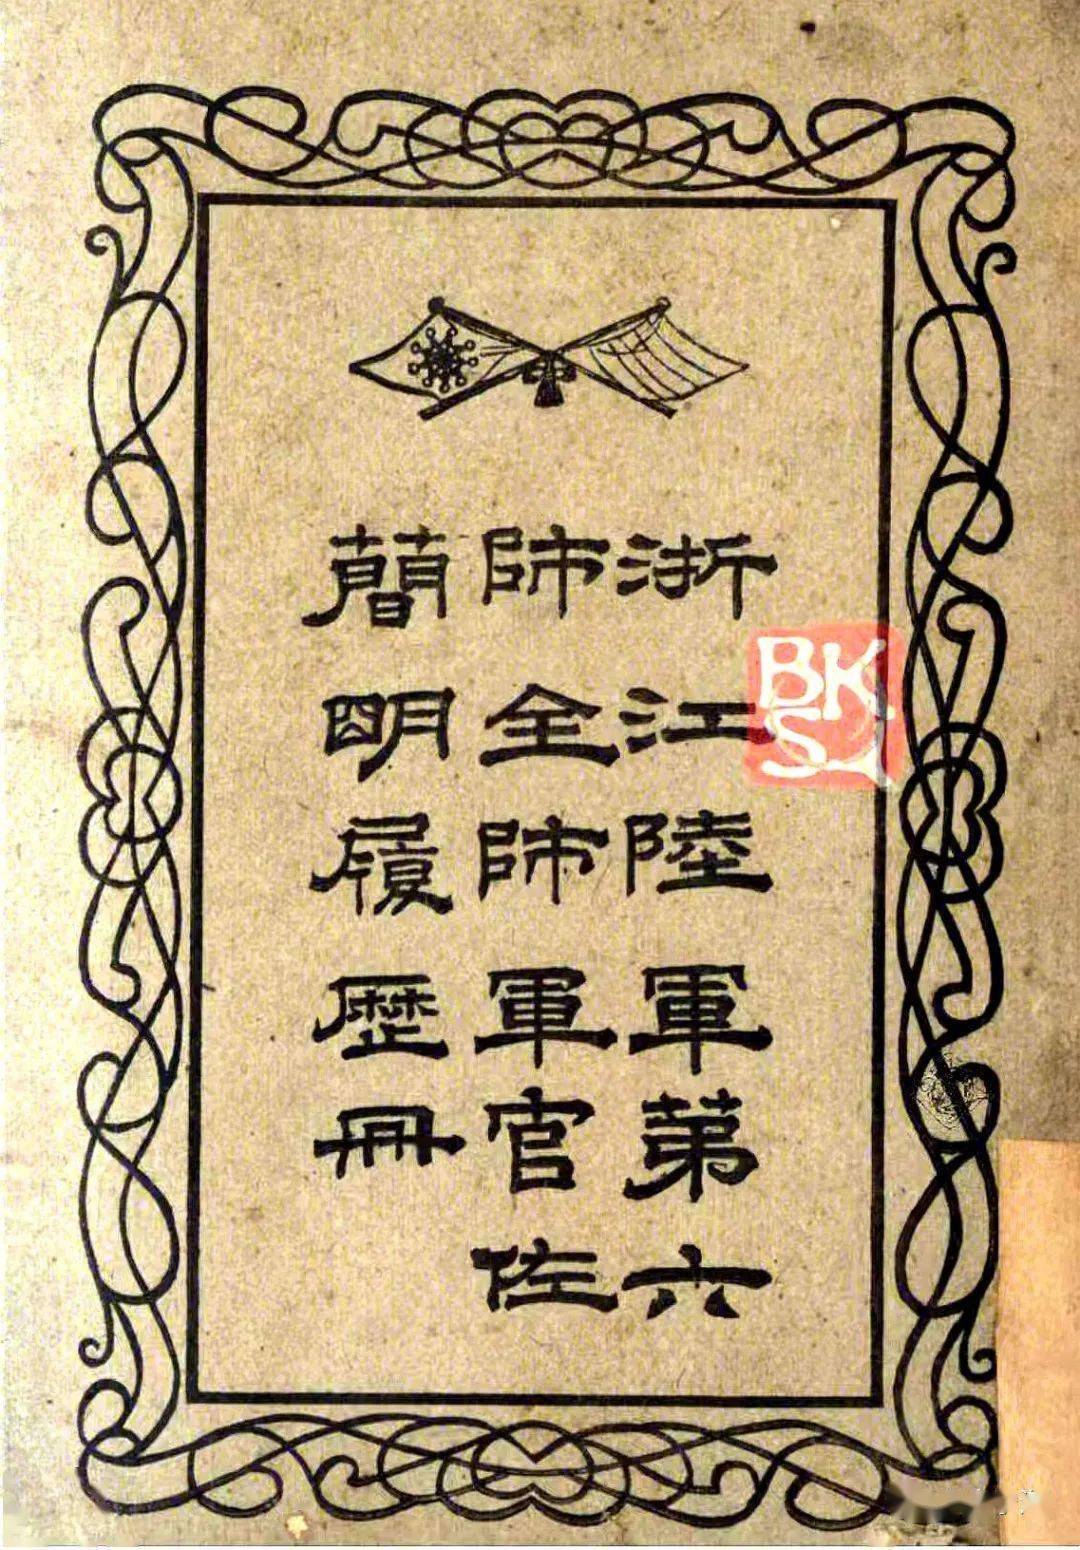 浙江陸軍第六
師全師軍官佐
簡明履歷冊
BK
S